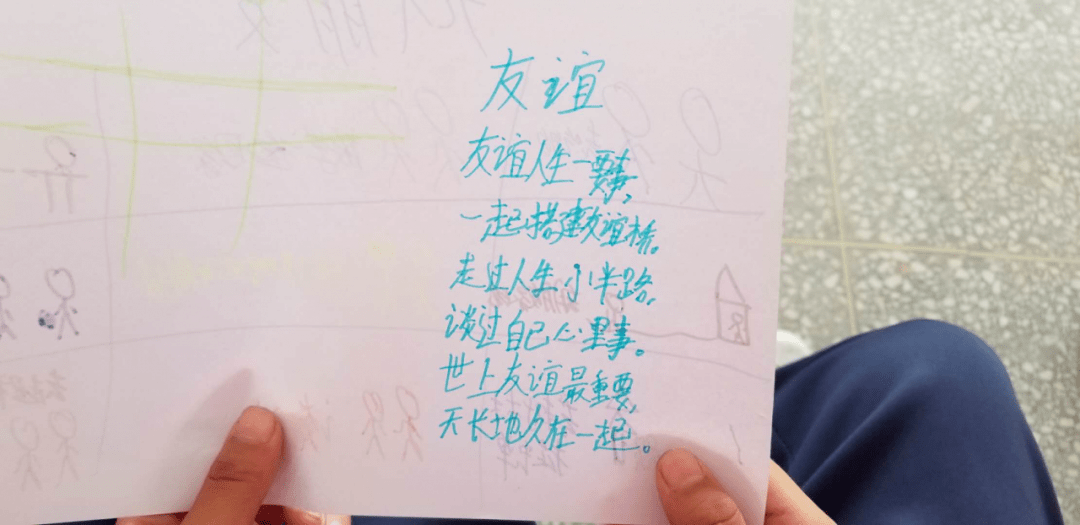 友谊
友谊人生一要事,
一起搭建友谊桥。
走过人生小半路,
谈过自己心里事。
世上友谊最重要,
天长地久在一起。